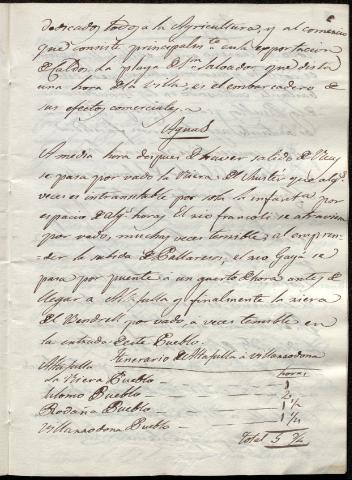 dedicados todos a la Agricultura, y al comercio
que consiste principalmte en la exportacion
de Caldos. La playa de Sn Salvador que dista
una hora de la Villa, es el embarcadero de
sus efectos comerciales.
Aguas
A media hora despues de haver salido de Reus
se pasa por vado la Riera que algs
veces es intransitable por sola la Infanta por
espacio de algs horas. El rio Francolí se atraviesa
por vado, muchas veces temible, al empren-
der la subida de Pallaresos, el rio Gayá se
pasa por puente a un quarto de hora antes de
llegar a Altafulla y finalmente la riera
del Bendrell por vado, a veces temible en
la entrada de este Pueblo.
Itinerario de Altafulla à Villarrodona
Altafulla horas
La Riera Pueblo 1
Salomo Pueblo
Rodoña Pueblo 1 1/2
Villarrodona Pueblo 1 1/2
Total 5